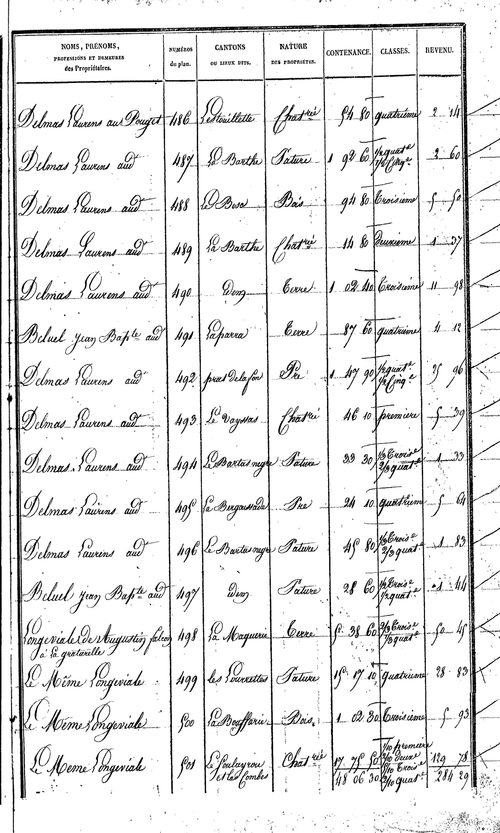 NOMS, PRÉNOMS, PROFESSIONS ET DEMEURES des Propriétaires. NUMÉROS du plan. CANTONS OU LIEUX DITS. NATURE DES PROPRIÉTÉS. CONTENANCE. CLASSES. REVENU.
Delmas Laurens au Pouget 486 Chat.rée 54 80 quatrième 2 14
Delmas Laurens aud.t 487 La Barthe Pature 1 92 60 1/2 quat.e 1/2 Cinq.e 3 60
Delmas Laurens aud.t 488 Le Bosc Bois 94 80 Troisieme 5 50
Delmas Laurens aud.t 489 La Barthe Chat.rée 14 80 Deuxieme 1 37
Delmas Laurens aud.t 490 idem Terre 1 02 40 Troisieme 11 98
Beluel Jean Bap.te aud.t 491 Laparra Terre 87 60 quatrième 4 12
Delmas Laurens aud.t 492 prat de lafon Pre 1 47 90 1/2 quat.e 1/2 Cinq.e 35 96
Delmas Laurens aud.t 493 Le Vayssas Chat.rée 46 10 premiere 5 39
Delmas Laurens aud.t 494 Le Bartas negre Pature 33 30 1/3 Trois.e 2/3 quat.e 1 33
Delmas Laurens aud.t 495 La Bergassade Pre 24 10 quatrieme 5 64
Delmas Laurens aud.t 496 Le Bartas negre Pature 45 80 1/3 Trois.e 2/3 quat.e 1 83
Beluel Jean Bap.te aud.t 497 idem Pature 28 60 1/2 Trois.e 1/2 quat.e 1 44
Longeviale de Augustin falcon à La gratarelle 498 La Maguerie Terre 5 38 60 2/3 Trois.e 1/3 quat.e 50 45
Le Même Longeviale 499 les Lourrettes Pature 15 17 10 quatrieme 28 83
Le Meme Longeviale 500 La Bouffarie Bois 1 02 30 Troisieme 5 93
Le Meme Longeviale 501 Le Poulayrou et les Combes Chat.rée 17 75 50 premiere deuxe Troise quat.e 129 78
48 06 30 284 29